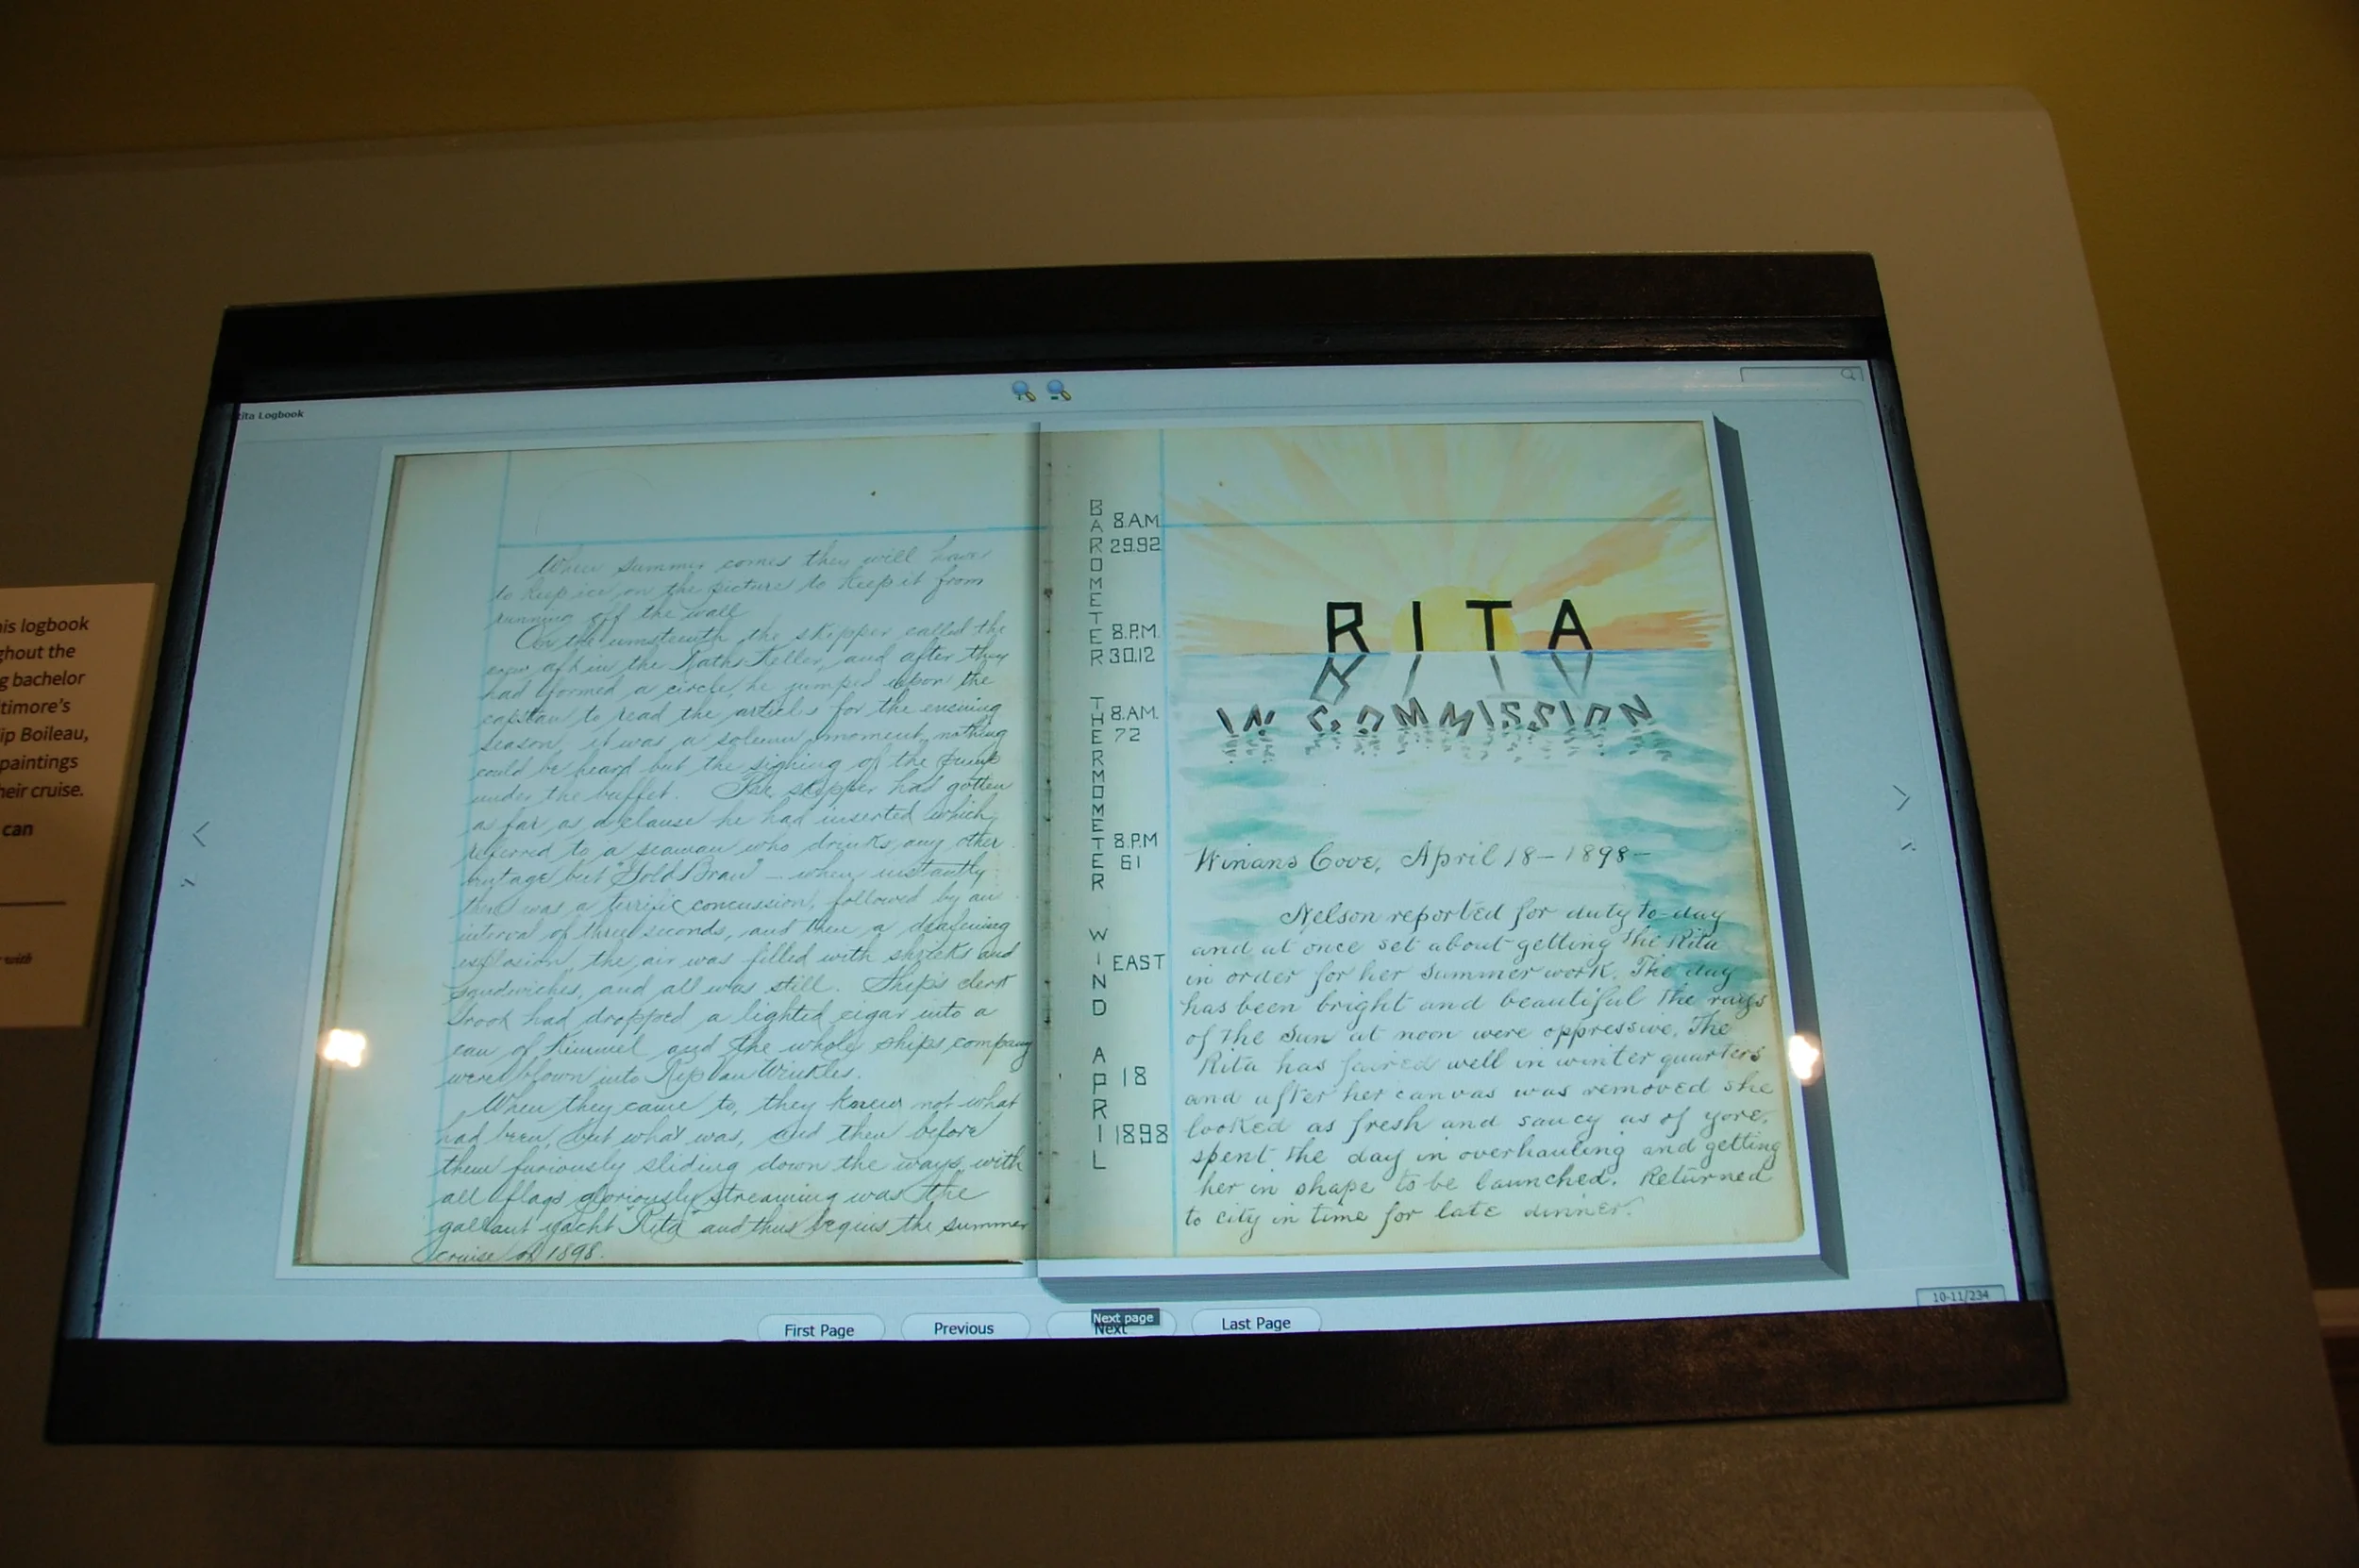 his logbook
ghout the
g bachelor
timore's
ip Boileau,
paintings
heir cruise.
can
with
ita Logbook
When summer comes they will have
to keep ice on the picture to keep it from
running off the wall
On the umsteenth the skipper called the
crew aft in the Raths Keller, and after they
had formed a circle, he jumped upon the
capstan to read the articles for the ensuing
season, it was a solemn moment, nothing
could be heard but the sighing of the
under the buffet. The skipper had gotten
as far as a clause he had inserted which
referred to a seaman who drinks any other
vintage but "Gold Bran" – when instantly
there was a terrific concussion, followed by an
interval of three seconds, and then a deafening
explosion, the air was filled with shrieks and
sandwiches, and all was still. Ship's clerk
had dropped a lighted cigar into a
can of Kimmel and the whole ships company
were blown into Rip Van Winkles.
When they came to, they knew not what
had been, but what was, and then before
them furiously sliding down the ways with
all flags gloriously streaming was the
gallant yacht "Rita" and thus begins the summer
cruise of 1898.
BAROMETER
8.A.M.
29.92
8.P.M.
30.12
THERMOMETER
8.AM.
72
8.P.M
61
WIND
EAST
APRIL
18
1898
RITA
IN COMMISSION
Winans Cove, April 18 – 1898 –
Nelson reported for duty to-day
and at once set about getting the Rita
in order for her summer work. The day
has been bright and beautiful the rays
of the sun at noon were oppressive. The
Rita has faired well in winter quarters
and after her canvas was removed she
looked as fresh and saucy as of yore.
spent the day in overhauling and getting
her in shape to be launched. Returned
to city in time for late dinner.
10-11/234
First Page
Previous
Next page
Next
Last Page